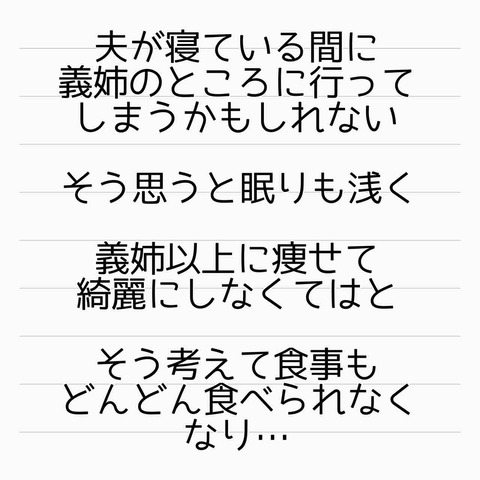 夫が寝ている間に
義姉のところに行って
しまうかもしれない
そう思うと眠りも浅く
義姉以上に痩せて
綺麗にしなくてはと
そう考えて食事も
どんどん食べられなく
なり…